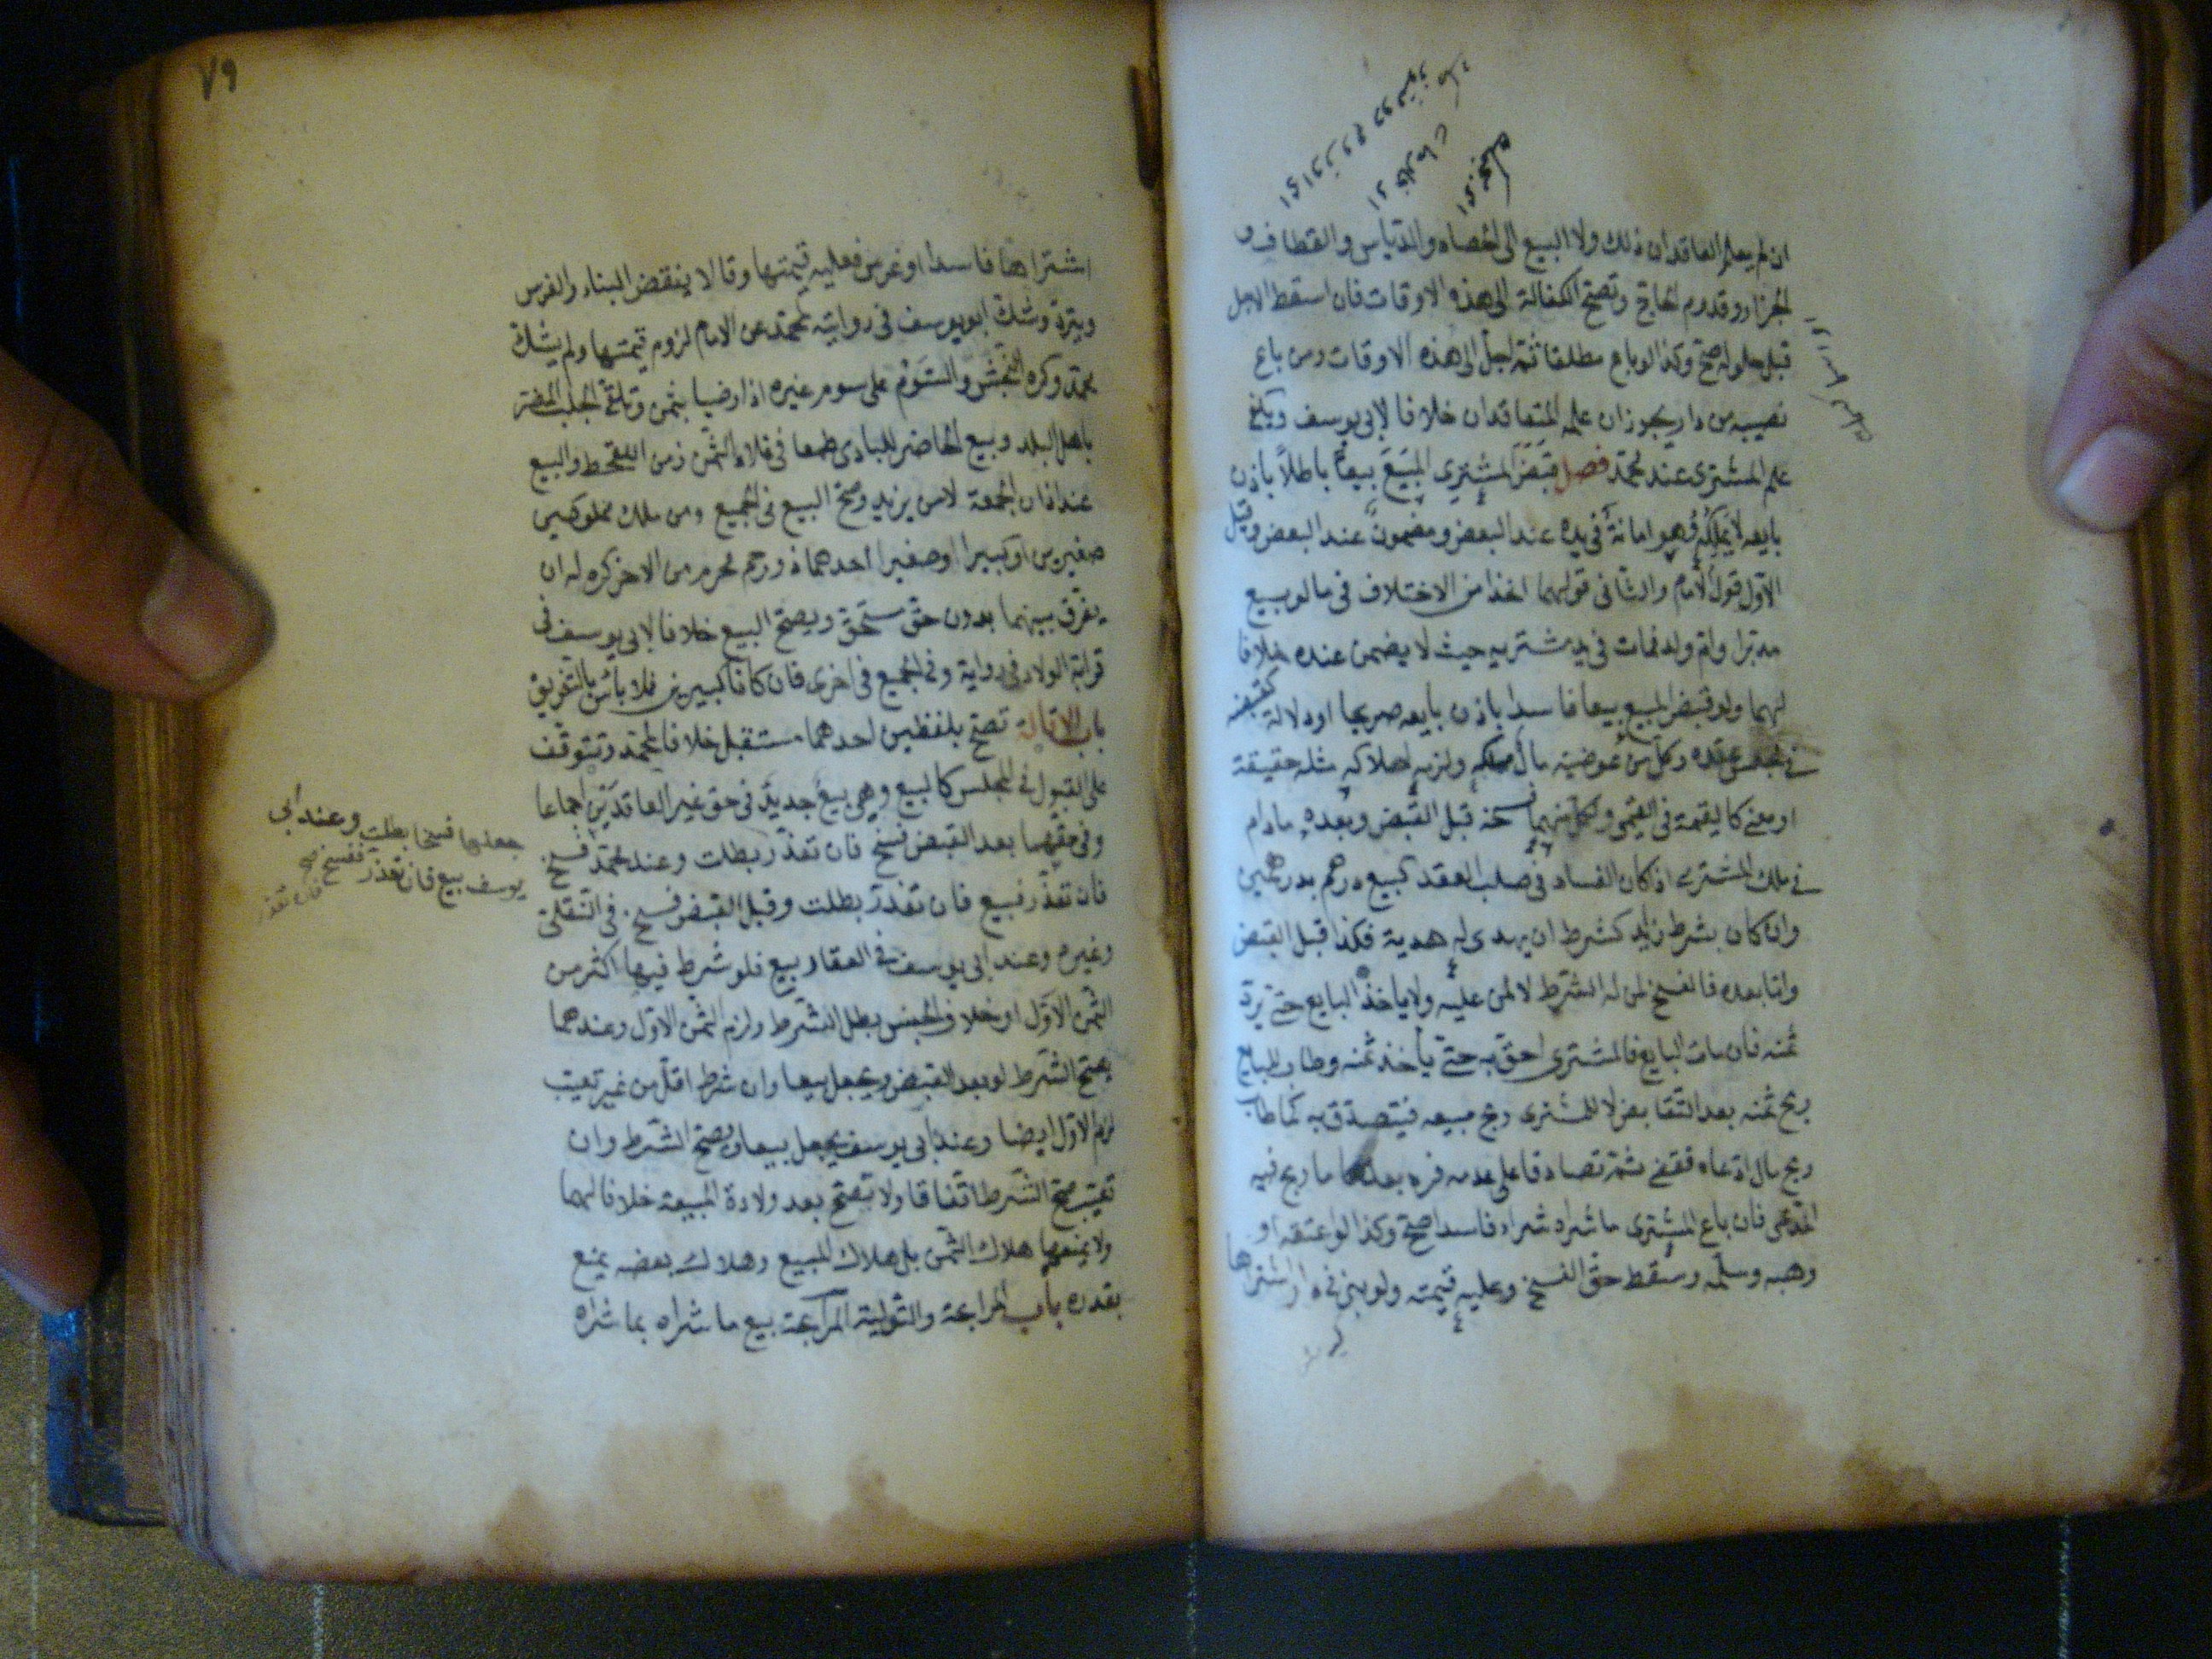 ان لم يعلم العاقدان ذلك ولا البيع الى الحصاد والدياس والقطاف و
الجزار وقدوم الحاج وتصح الكفالة الى هذه الاوقات فان اسقط الاجل
قبل حلوله صح وكذا لو باع مطلقا ثم اجل الى هذه الاوقات ومن باع
نصيبه من دار يجوز ان علمه المتعاقدان خلافا لابى يوسف ويكفى
علم المشترى عند محمد فصل قبض المشترى المبيع بيعا باطلا باذن
بايعه لا يملكه وهو امانة فى يده عند البعض ومضمون عند البعض وقيل
الاول قول الامام والثانى قولهما اخذا من الاختلاف فى ما لو بيع
مدبرا وام ولد فمات فى يد مشتريه حيث لا يضمن عنده خلافا
لهما ولو قبض المبيع بيعا فاسدا باذن بايعه صريحا او دلالة كقبضه
فى مجلس عقده وكل من عوضيه مال ملكه ولزمه لهلاكه مثله حقيقة
او معنى كالقيمة فى القيمى ولكل منهما فسخه قبل القبض وبعده مادام
فى ملك المشترى اذ كان الفساد فى صلب العقد كبيع درهم بدرهمين
وان كان بشرط زايد كشرط ان يهدى له هدية فكذا قبل القبض
واما بعده فالفسخ لمن له الشرط لا لمن عليه ولا ياخذ البايع حتى يرد
ثمنه فان مات البايع فالمشترى احق به حتى يأخذ ثمنه وطاب للبايع
ربح ثمنه بعد التقابض لا للمشترى ربح مبيعه فيتصدق به كما طاب
ربح مال ادعاه فقضى ثمه تصادقا على عدمه فرد بعد ما ربح فيه
المدعى فان باع المشترى ما شراه شراء فاسدا صح وكذا لو اعتقه او
وهبه وسلمه وسقط حق الفسخ وعليه قيمته ولو بنى فى دار اشتراها
٧٩
اشتراها فاسدا او غرس فعليه قيمتها وقالا ينقض البناء والغرس
ويترد وشك ابو يوسف فى روايته لمحمد عن الامام لزوم قيمتها ولم يشك
محمد وكره النجش والسوم على سوم غيره اذا رضيا بثمن وتلقى الجلب المضر
باهل البلد وبيع الحاضر للبادى طمعا فى غلاء الثمن زمن القحط والبيع
عند اذان الجمعة لا من يزيد وصح البيع فى الجميع ومن ملك مملوكين
صغيرين او كبيرا وصغيرا احدهما ذو رحم محرم من الاخر كره له ان
يفرق بينهما بدون حق مستحق ويصح البيع خلافا لابى يوسف فى
قرابة الولاد فى رواية وفى الجميع فى اخرى فان كانا كبيرين فلا بأس بالتفريق
باب الاقالة تصح بلفظين احدهما مستقبل خلافا لمحمد وتتوقف
على القبول فى المجلس كالبيع وهى بيع جديد فى حق غير العاقدين اجماعا
وفى حقهما بعد القبض فسخ فان تعذر بطلت وعند محمد فسخ
فان تعذر فبيع فان تعذر بطلت وقبل القبض فسخ فى النقلى
وغيره وعند ابى يوسف فى العقار بيع فلو شرط فيها اكثر من
الثمن الاول او خلاف الجنس بطل الشرط ولزم الثمن الاول وعندهما
يصح الشرط لو بعد القبض ويجعل بيعا وان شرط اقل من غير تعيب
لزم الاول ايضا وعند ابى يوسف يجعل بيعا ويصح الشرط وان
تعيب صح الشرط اتفاقا ولا تصح بعد ولادة المبيعة خلافا لهما
ولا يمنعها هلاك الثمن بل هلاك المبيع وهلاك بعضه يمنع
بقدره باب المرابحة والتولية المرابحة بيع ما شراه بما شراه
جعلها فسخا بطلت وعند ابى
يوسف بيع فان تعذر ففسخ صح
فان تعذر